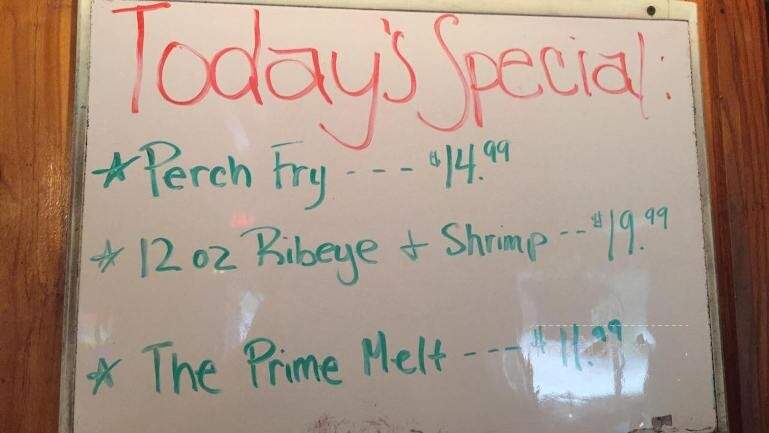 Today's Special:
☆ Perch Fry --- $14.99
☆ 12 oz Ribeye + Shrimp -- $19.99
☆ The Prime Melt --- $11.99